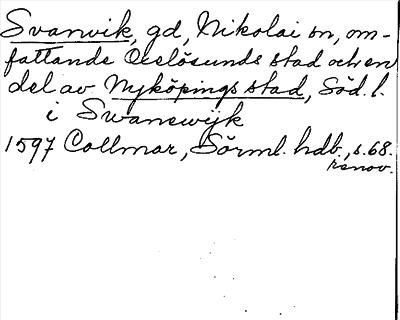 Svanvik, gd, Nikolai sn, om-
fattande Oxelösunds stad och en
del av Nyköpings stad, Söd. l.
i Swanswijk
1597 Collmar, Sörml. hdb., s. 68.
renov.